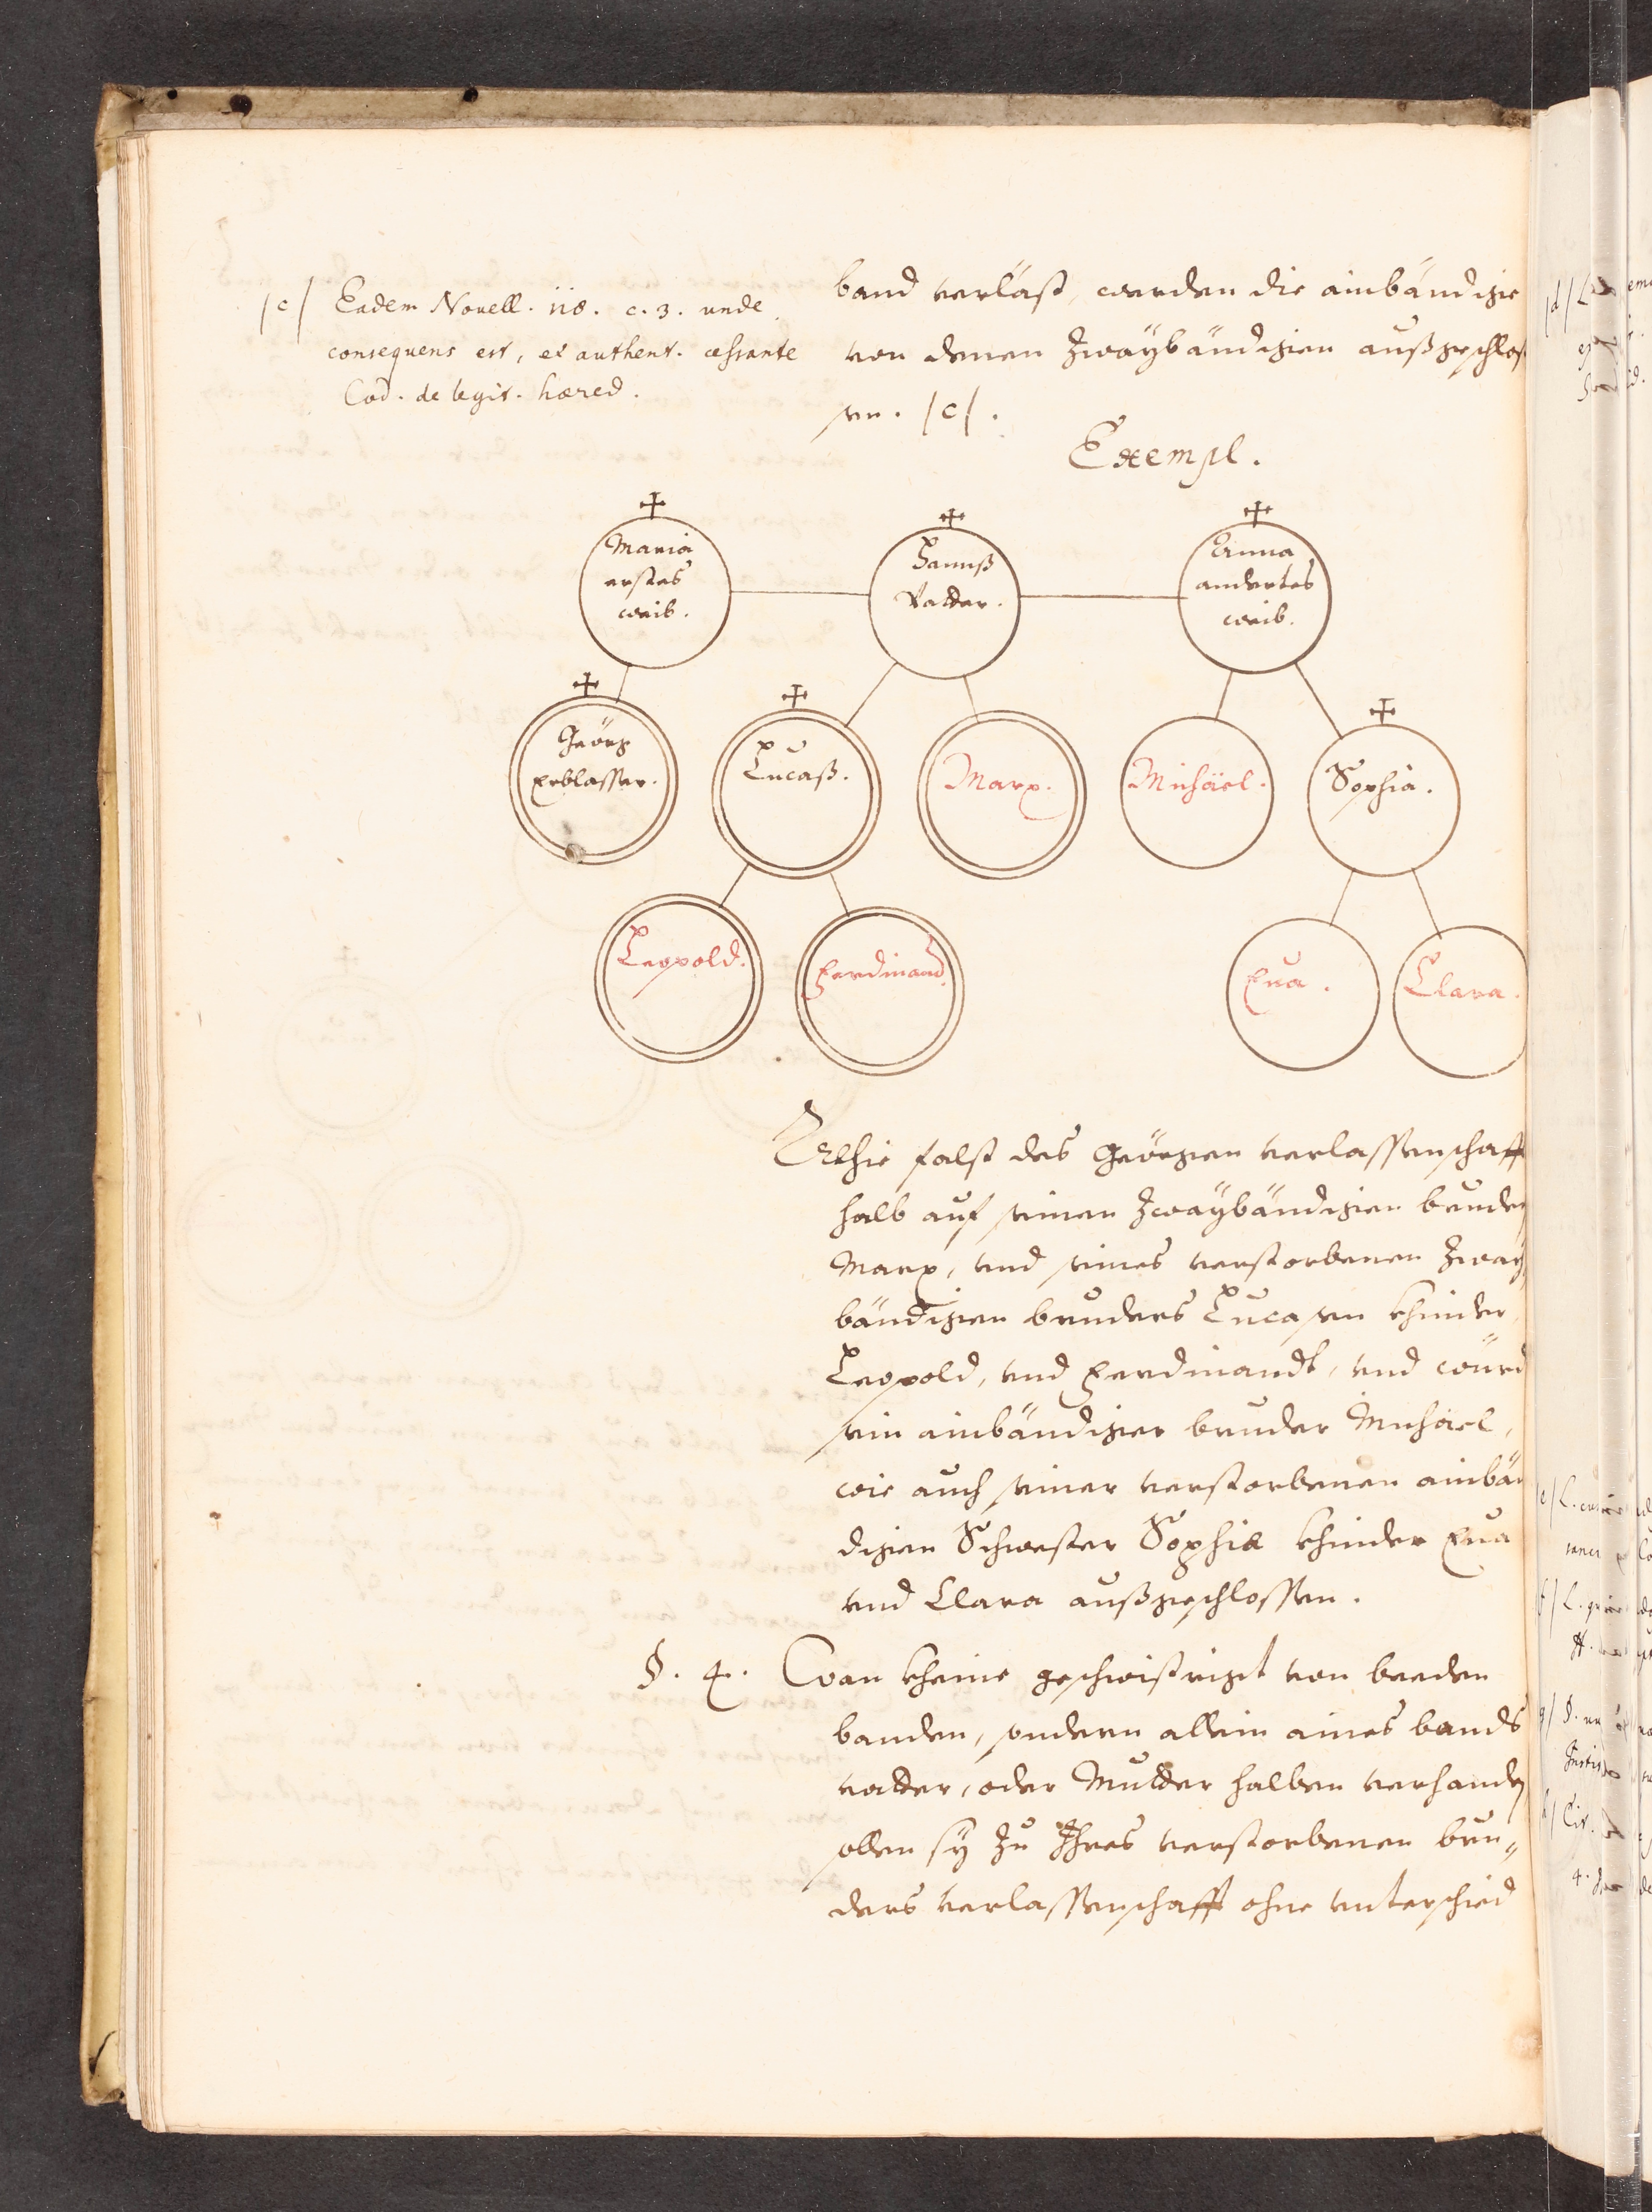 /c/ Eadem Nouell. 118. c. 3. unde
consequens est, et authent. cessante
Cod. de legit. hæred.
band verläst, werden die ainbändige
von denen Zwaÿbändigen außgeschlos
sen. /c/.
Exempl.
Maria
erstes
weib.
Hannß
Vatter.
Anna
andertes
weib.
Geörg
Erblasser.
Lucaß.
Marx.
Michäel.
Sophia.
Leopold.
Ferdinand.
Eua.
Clara.
Alhie falst des Geörgen verlassenschafft
halb auf seinen Zwaÿbändigen bruder
Marx, vnd seines verstorbenen Zwaÿ
bändigen bruders Lucasen khinder,
Leopold, vnd Ferdinandt, vnd würd
sein ainbändiger bruder Michäel,
wie auch seiner verstorbenen ainbän
digen Schwester Sophiæ khinder Eua
vnd Clara außgeschlossen.
§. 4. Wan kheine geschwistrigt von beeden
banden, sondern allein aines bands
vatter, oder Mutter halben verhanden
sollen sÿ Zu Ihres verstorbenen bru„
ders verlassenschafft ohne vnterschied